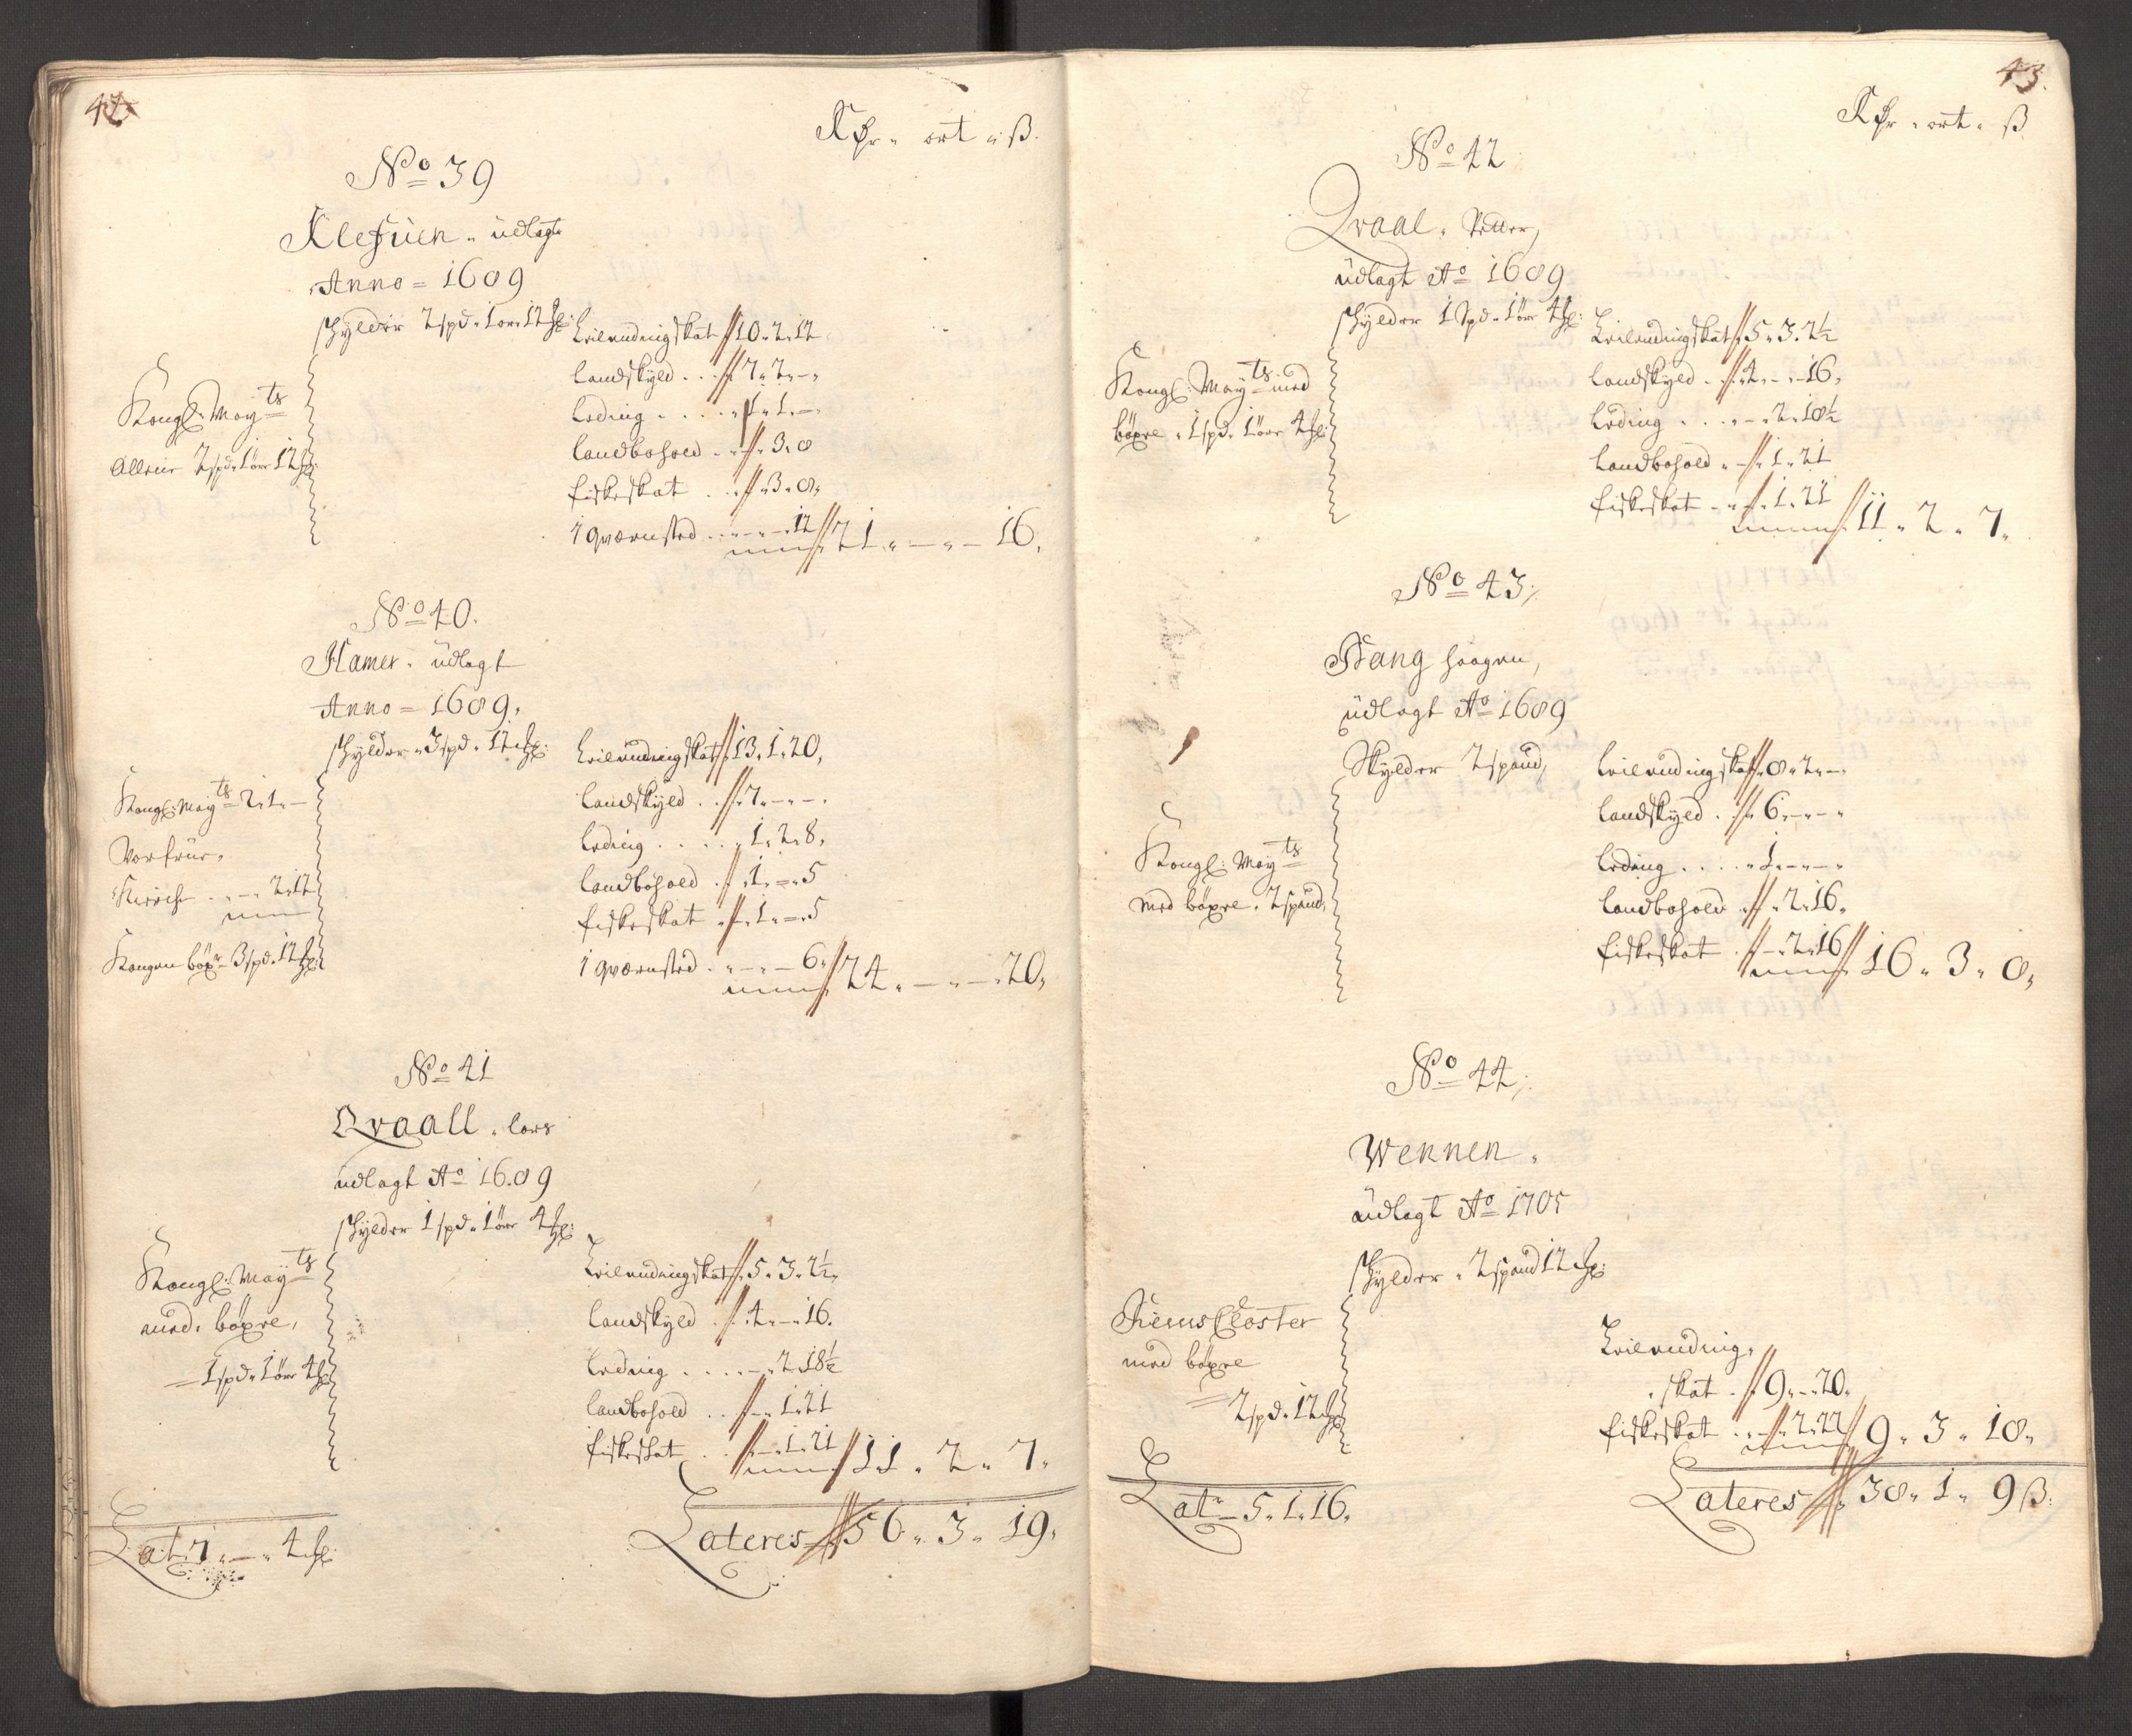 42
Rdr " ort " ß.
No 39
Klefuen " udlagt
Anno = 1689
schylder 2 spd " 1 ør 12 ℳ:
Kongl: Mayts
Allene 2 spd " 1 øre 12 ℳ:
Leilendingskat 10 " 2 " 12
Landskyld . . 7 " 2 " — "
Leding . . . . " 1 " 1 " —
Landbohold . . " 3 " 8
fiskeskat . . " 3 " 8 "
1 qværnsted . . - - - 12 21 " — " — 16 "
No 40.
Hamer " udlagt
Anno = 1689 "
schylder " 3 spd " 12 ℳ:
Kongl: Mayts 2 " 1 " —
Vorfrue "
Kirche . . - - 2 " 12
Kongen böx: 3 spd " 12 ℳ
Leilendingskat 13 " 1 " 20 "
Landskyld . . 7 " - - "
Leding . . . . " 1 " 2 " 8 "
Landbohold . . 1 " — " 5
fiskeskat . . 1 " — " 5
1 qværnsted . " - " — 6 " 24 " — " — " 20 "
No 41
Qvaall " Lars
udlagt Ao 1689
schylder 1 spd " 1 øre 4 ℳ:
Kongl: Mayts
med " böxle "
= 1 spd " 1 øre 4 ℳ
Leilendingskat 5 " 3 " 2½ "
Landskyld . . 4 " — " 16 "
Leding . . . . — " 2 " 18½
Landbohold . . — " 1 " 21
fiskeskat . . — " 1 " 21 11 " 2 " 7 "
Lat: 7 " — " 4 ℳ:
Lateres 56 " 3 " 19 "
43.
Rdr " ort " ß
No 42
Qvaal " Petter,
udlagt Ao 1689
schylder 1 spd " 1 øre 4 ℳ:
Kongl: Mayts med
böxle " 1 spd " 1 øre 4 ℳ:
Leilendingskat 5 " 3 " 2½
Landskyld . . 4 " - " - 16 "
Leding . . . " — " 2 " 18½
Landbohold . . — " 1 " 21
fiskeskat . . " 1 " 21 11 " 2 " 7 "
No 43;
Stang haagen,
udlagt Ao 1689
Skylder 2 spand,
Kongl: Mayts
med böxle " 2 spand,
Leilendingskat 8 " 2 " —
Landskyld . . 6 " — " — "
Leding . . . . " 1 " — " — "
Landbohold . . " 2 " 16 "
fiskeskat . . — 2 " 16 16 " 3 " 8 "
No 44;
Wennen "
udlagt Ao 1705
schylder " 2 spand 12 ℳ:
Reins Closter
med böxle
= 2 spd " 12 ℳ
Leilending "
" skat . . 9 " — " 20 "
fiskeskat . . . " 2 " 22 9 " 3 " 18 "
Latr 5 " 1 " 16 "
Lateres 38 " 1 " 9 ß: